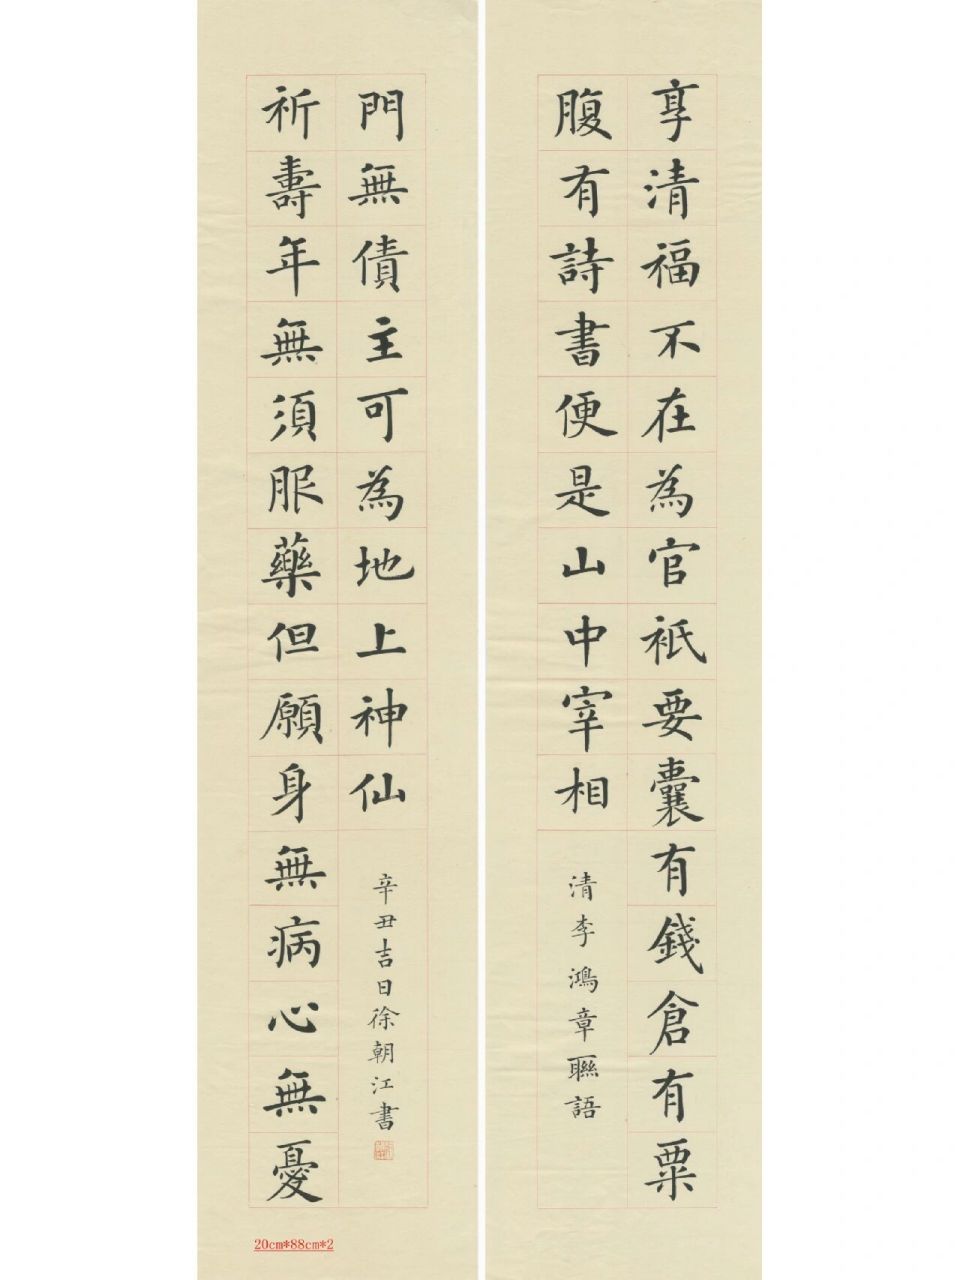 享清福不在為官祇要囊有錢倉有粟
腹有詩書便是山中宰相
清李鴻章聯語
祈壽年無須服藥但願身無病心無憂
門無債主可為地上神仙
辛丑吉日徐朝江書
20cm*88cm*2